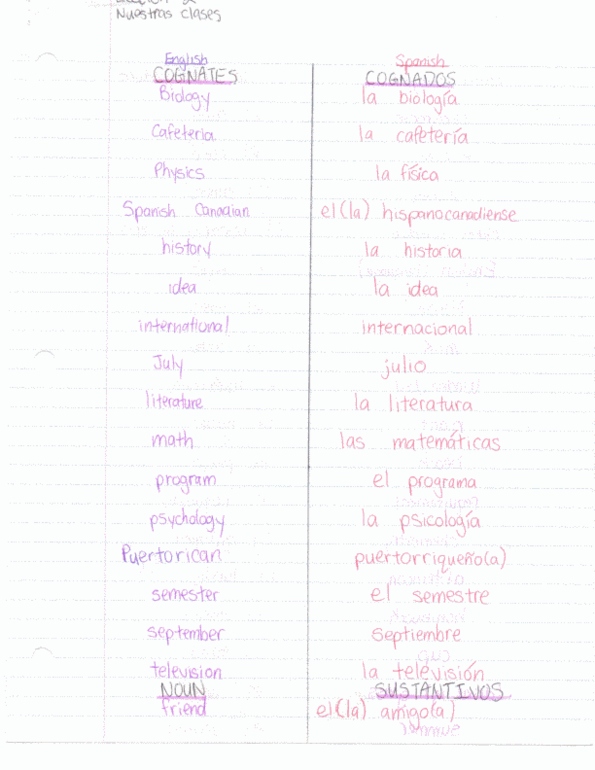 Nuestras clases
English Spanish
COGNATES COGNADOS
Biology la biología
Cafeteria la cafetería
Physics la física
Spanish Canadian el(la) hispanocanadiense
history la historia
idea la idea
international internacional
July julio
literature la literatura
math las matemáticas
program el programa
psychology la psicología
Puertorican puertorriqueño(a)
semester el semestre
september septiembre
television la televisión
NOUN SUSTANTIVOS
friend el(la) amigo(a)